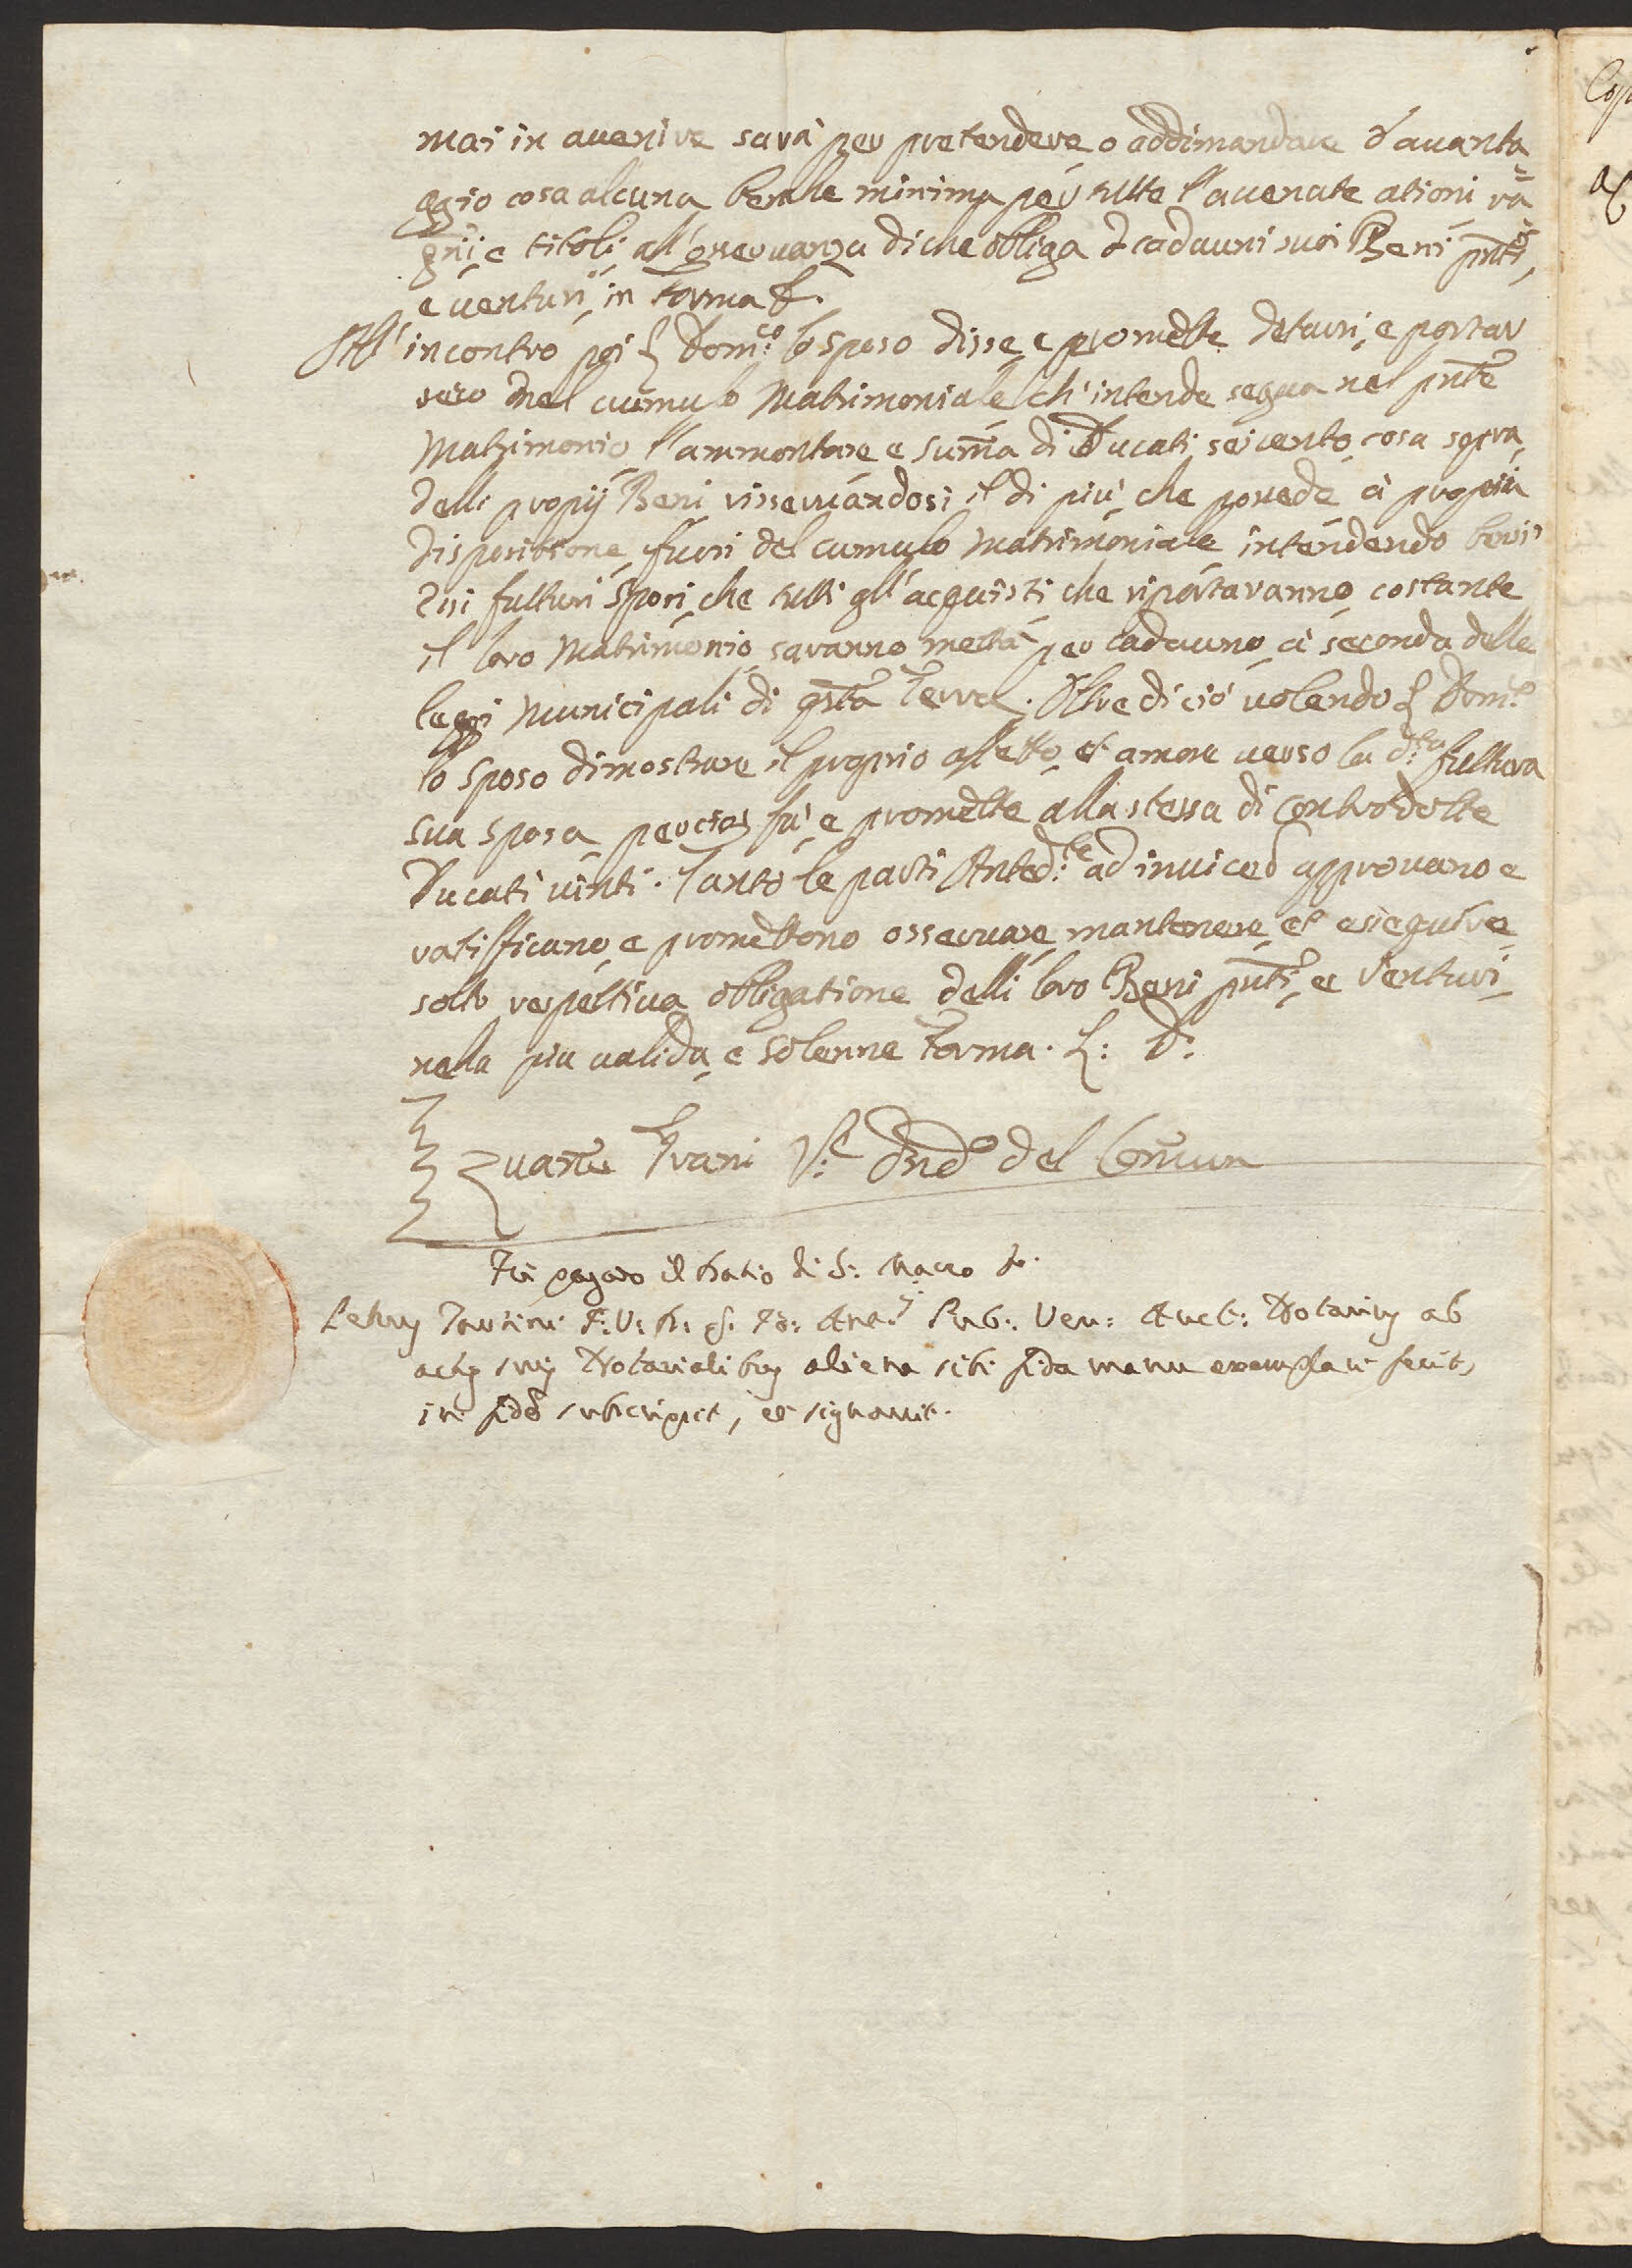 mai in avenire sarà per pretendere o addimandare d'avanta=
ggio cosa alcuna benche minima per tutte l'avenate ationi ra=
gni, e titoli, all'osservanza di che obbliga cadauni suoi Beni pnti,
e venturi, in forma
All' incontro poi Dom:co lo sposo disse, e promette deturi, e portar
seco nel cumulo Matrimoniale ch'intende segua nel pnte
Matrimonio l'ammontare e suma di Ducati seicento cosa sopra
delli propij Beni risservandosi il di più che possede à propria
dispositione fuori del cumulo Matrimoniale intendendo
essi futturi Sposi che tutti gl'acquisti che riportaranno costante
il loro Matrimonio saranno mettà per cadauno à seconda delle
leggi Municipali di qsta Terra. Oltre di ciò volendo Dom:o
lo sposo dimostrare il proprio affetto et amore verso la d:ta futtura
sua sposa perciò fà e promette alla stessa di Controdotte
Ducati vinti. Tanto le parti Anted:te ad invicem approvano e
ratifficano e promettono osservare mantenere et eseguire
sotto respettiva obbligatione delli loro Beni pnti e venturi
nella più valida e solenne forma. L: D:
Zuane Ivani V:e del Comun
Fù pagato il Datio di S: Marco
Pub: Ven: Auct: Notarius ab
actis suis Notarialibus aliena sibi fida manu exemplari fecit,
in fidē subscripsit, et signavit.
Cop